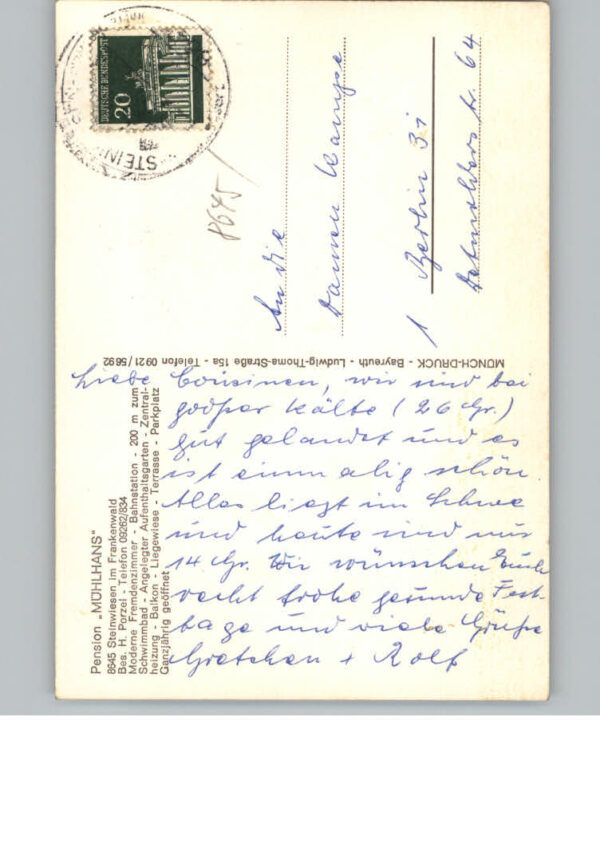 Pension „MÜHLHANS“
8645 Steinwiesen im Frankenwald
Bes. H. Porzel - Telefon 09262/834
Moderne Fremdenzimmer - Bahnstation - 200 m zum
Schwimmbad - Angelegter Aufenthaltsgarten - Zentral-
heizung - Balkon - Liegewiese - Terrasse - Parkplatz
Ganzjährig geöffnet
Liebe Cousinen, wir sind bei
großer Kälte (26 Gr.)
gut gelandet und es
ist einmalig schön
Alles liegt im Schnee
und heute sind nur
14 Gr. Wir wünschen Euch
recht frohe gesunde Fest-
tage und viele Grüße
Gretchen + Rolf
MÜNCH-DRUCK - Bayreuth - Ludwig-Thoma-Straße 15a - Telefon 0921/5692
DEUTSCHE BUNDESPOST
20
8645
An die
Damen Kampe
1 Berlin 31
64